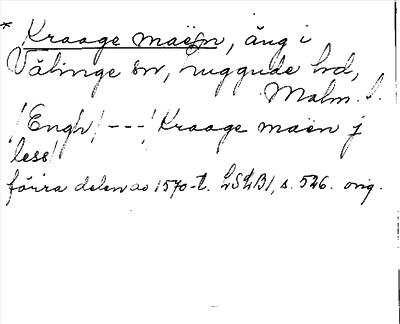 * Kraage maën, äng i
Välinge sn, Luggude hd,
Malm. l.
/Engh/ ---/ Kraage maën j
less/
förra delen av 1570-t. LSLB1, s. 526. orig.